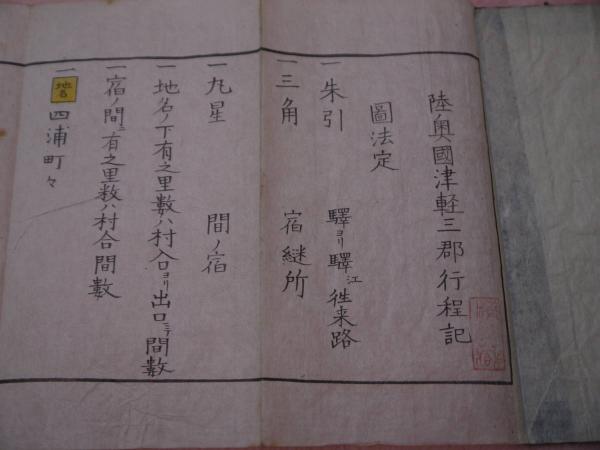 陸奥國津軽三郡行程記
圖法定
一朱引 驛ヨリ驛江徃来路
一三角 宿継所
一丸星 間ノ宿
一地名ノ下有之里數ハ村入口ヨリ出口ニテ間數
一宿ノ間ニ有之里数ハ村合間數
一地名 四浦町々